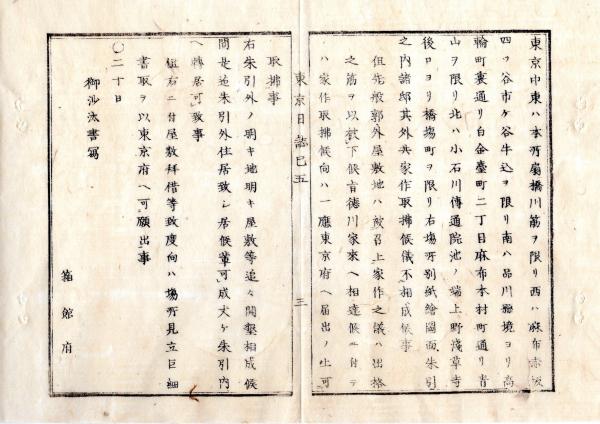 東京中東ハ本所扇橋川筋ヲ限リ西ハ麻布赤坂
四ツ谷市ケ谷牛込ヲ限リ南ハ品川縣境ヨリ高
輪町裏通リ白金臺町二丁目麻布本村町通リ青
山ヲ限リ北ハ小石川傳通院池ノ端上野淺草寺
後ロヨリ橋塲町ヲ限リ右塲所別紙繪圖面朱引
之内諸邸其外共家作取拂候儀不相成候事
但先般郭外屋敷地ハ被召上家作之儀ハ出格
之筋ヲ以被下候旨德川家來ヘ相達候ニ付テ
ハ家作取拂候向ハ一應東京府ヘ届出ノ上可
東京日誌巳五
三
取拂事
右朱引外ノ明キ地明キ屋敷等追々開墾相成候
間是迄朱引外住居致シ居候輩可成丈ケ朱引内
ヘ轉居可致事
但右ニ付屋敷拜借等致度向ハ塲所見立巨細
書取ヲ以東京府ヘ可願出事
〇二十日
御沙汰書寫
箱館府